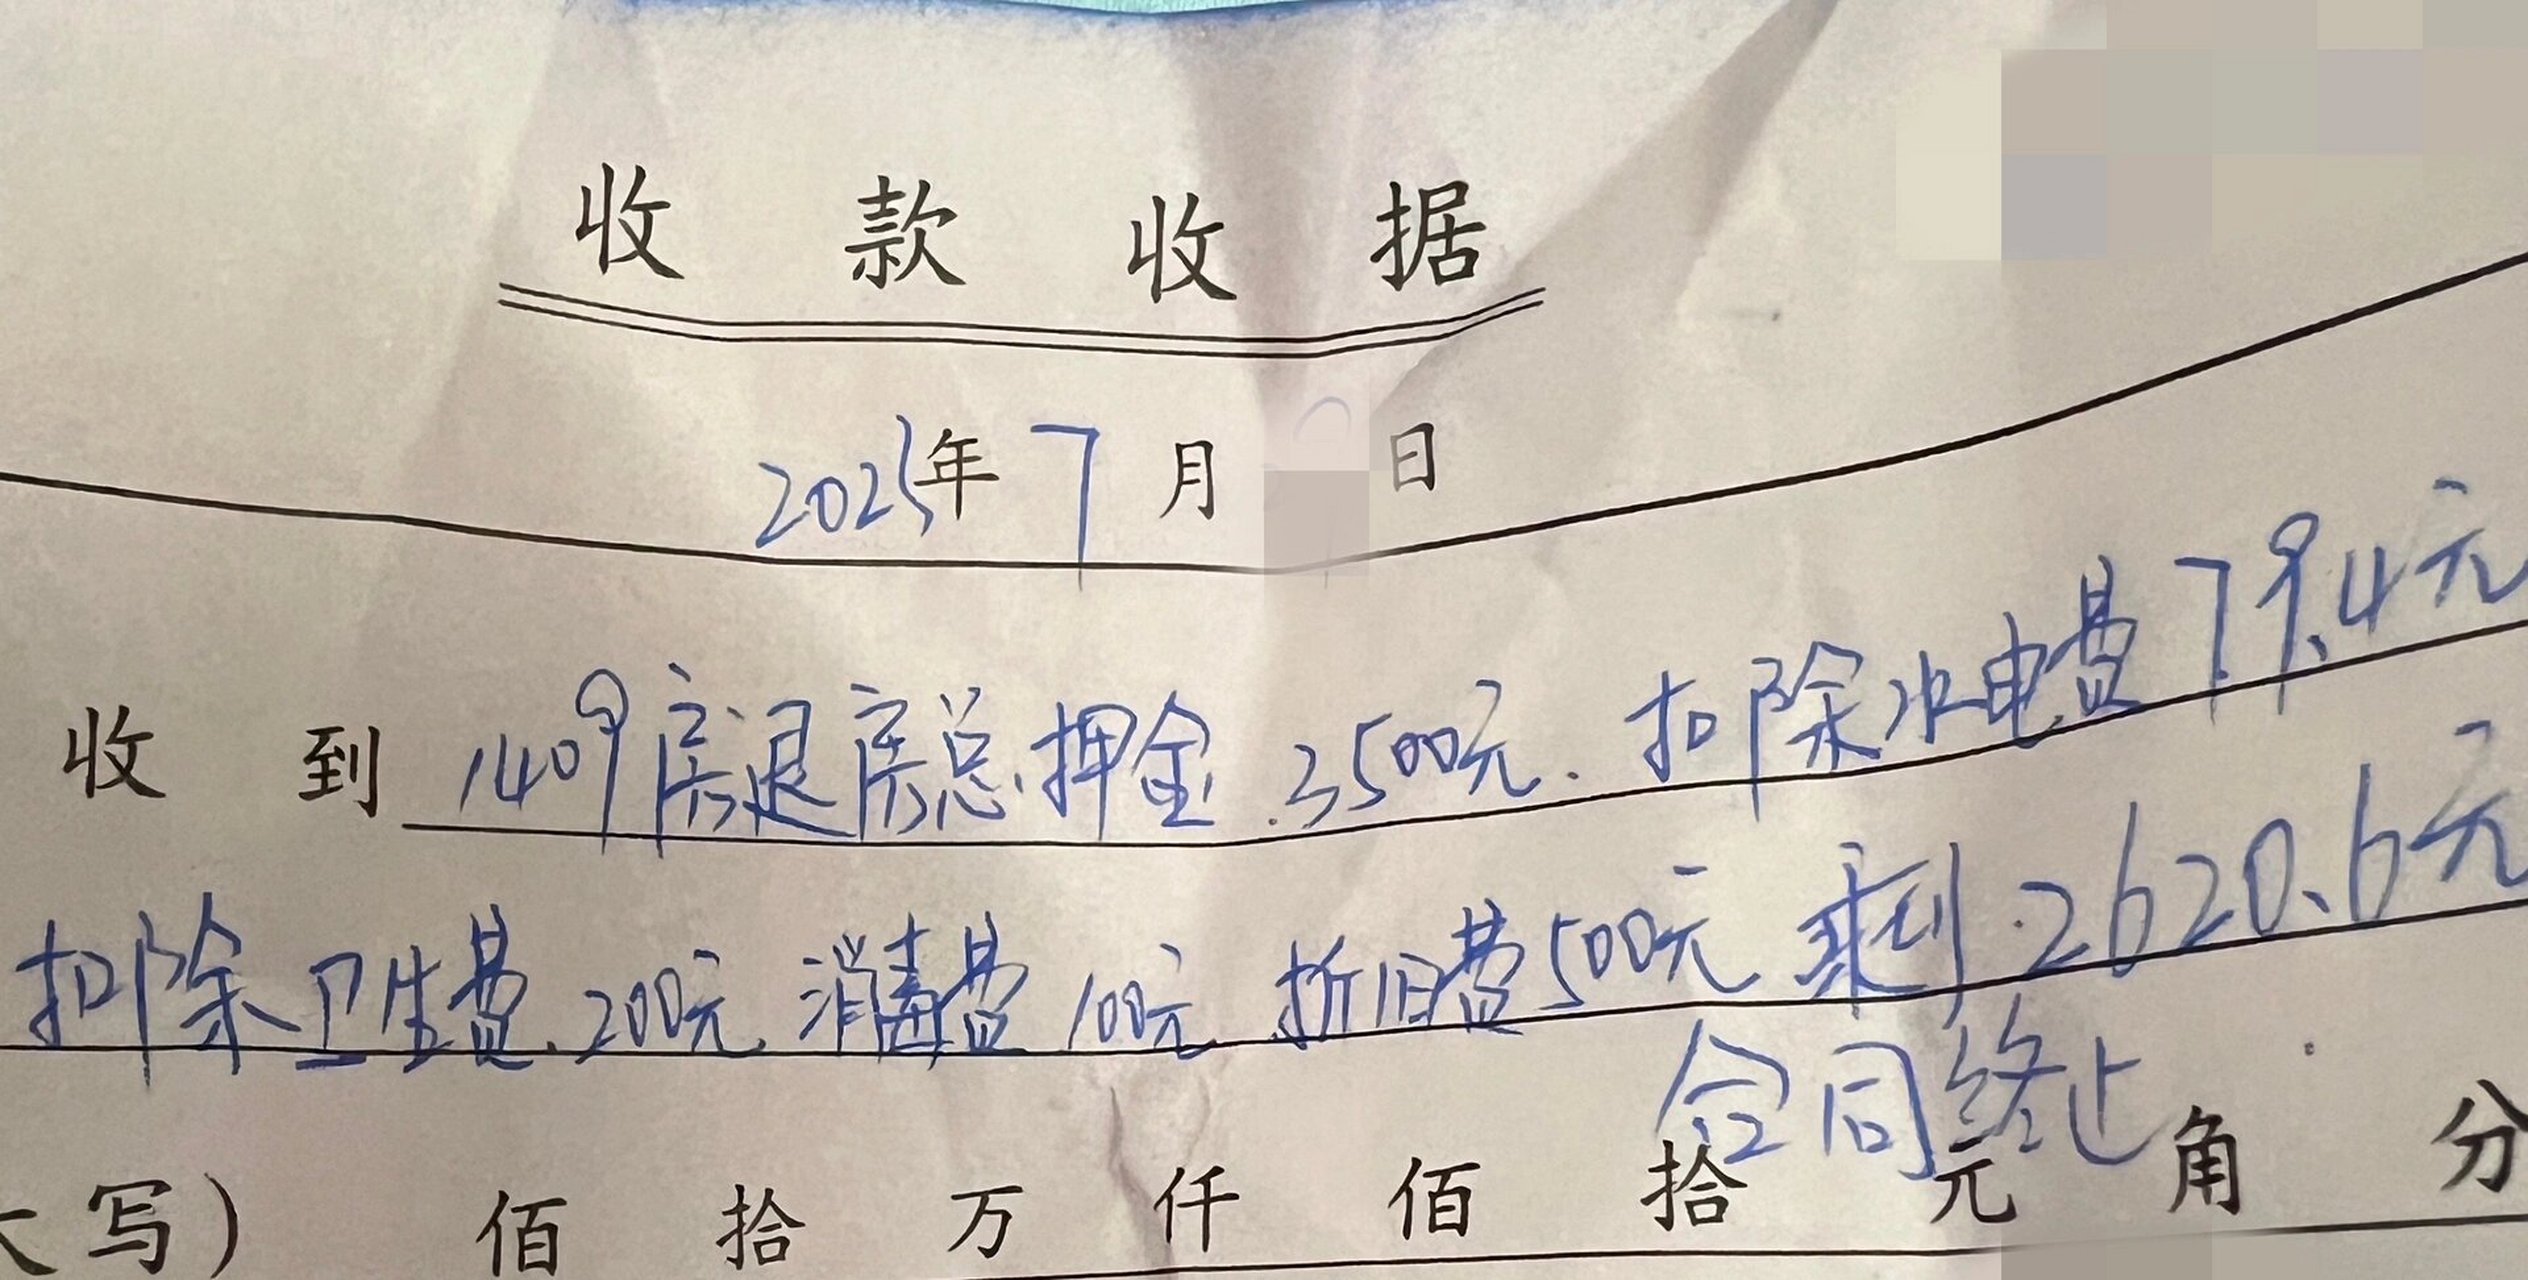 收款收据
2025年7月 日
收到 1409房退房总押金.3500元.扣除水电费79.4元
扣除卫生费.200元.消毒费100元.折旧费500元 剩到.2620.6元
合同终止
大写) 佰 拾 万 仟 佰 拾 元 角 分